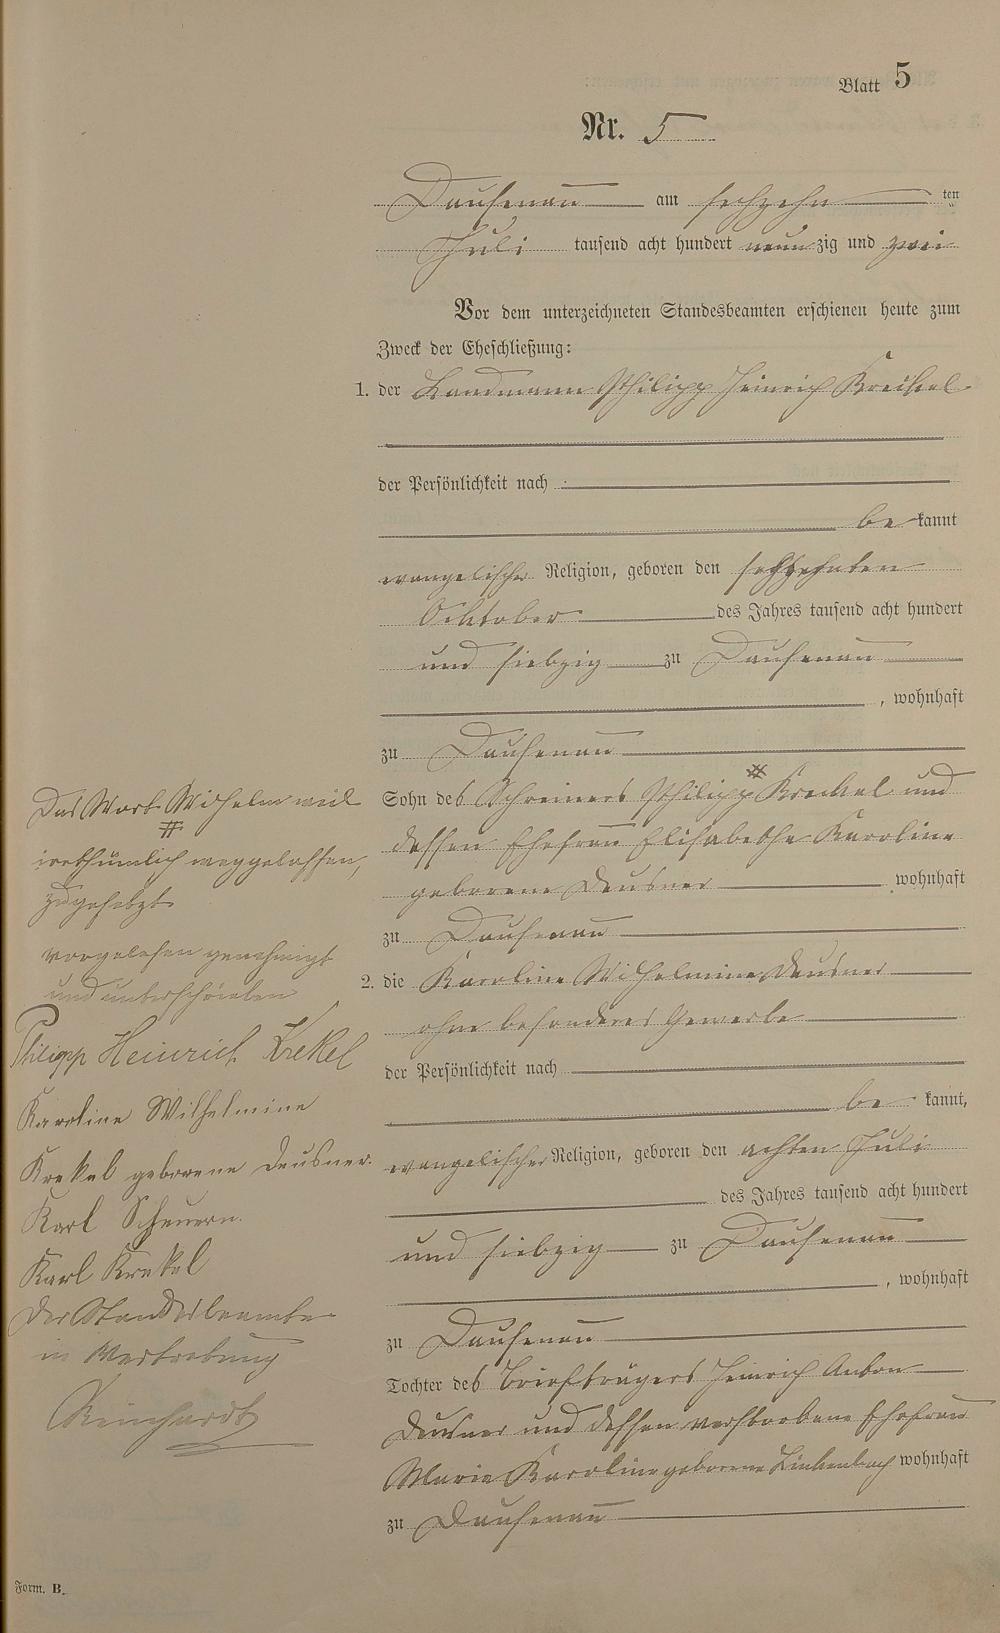 Blatt 5
Nr. 5
Dausenau am sechzehn ten
Juli tausend acht hundert neun zig und zwei
Vor dem unterzeichneten Standesbeamten erschienen heute zum
Zweck der Eheschließung:
1. der Landmann Philipp Heinrich Krekel
der Persönlichkeit nach
be kannt
evangelischer Religion, geboren den sechzehnten
Oktober des Jahres tausend acht hundert
und siebzig zu Dausenau
, wohnhaft
zu Dausenau
Sohn des Schreiners Philipp # Krekel und
dessen Ehefrau Elisabethe Karoline
geborene Deusner wohnhaft
zu Dausenau
2. die Karoline Wilhelmine Deusner
ohne besonderes Gewerbe
der Persönlichkeit nach
be kannt,
evangelischer Religion, geboren den achten Juli
des Jahres tausend acht hundert
und siebzig zu Dausenau
, wohnhaft
zu Dausenau
Tochter des Briefträgers Heinrich Anton
Deusner und dessen verstorbene Ehefrau
Marie Karoline geborene Linkenbach wohnhaft
zu Dausenau
Das Wort Wilhelm weil
#
irrthümlich weggelassen,
zugesetzt
vorgelesen genehmigt
und unterschrieben
Philipp Heinrich Krekel
Karoline Wilhelmine
Krekel geborene Deusner.
Karl Scheuern.
Karl Krekel
Der Standesbeamte
in Vertretung
Reinhardt
Form. B.